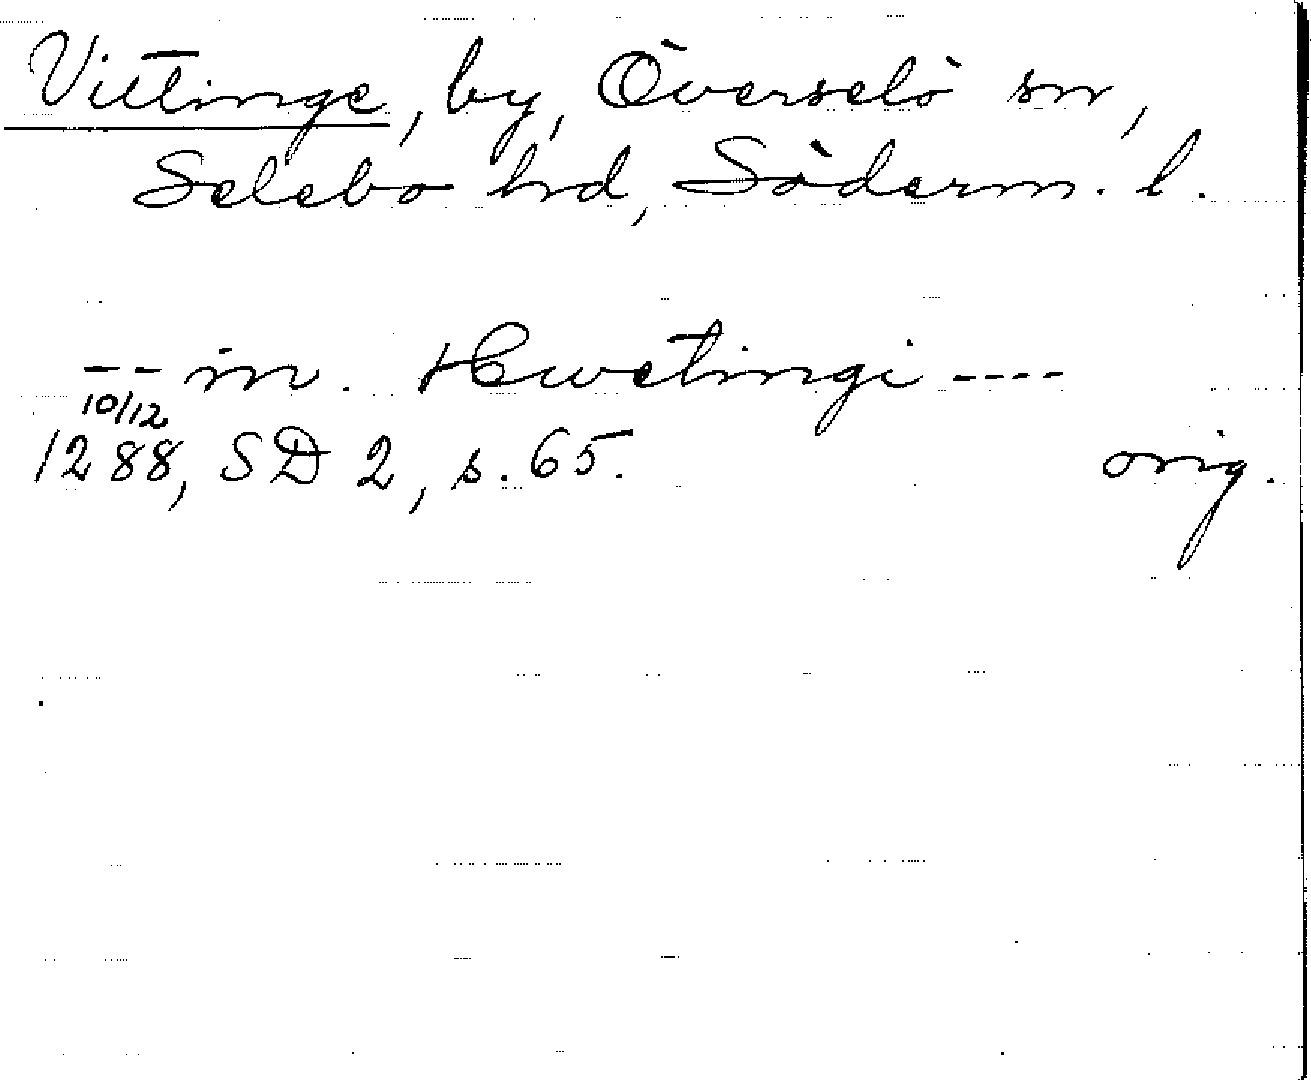 Vittinge, by, Överselö sn,
Selebo hrd, Söderm. l.
-- in. Hwetingi ----
10/12
1288, SD 2, s. 65. orig.